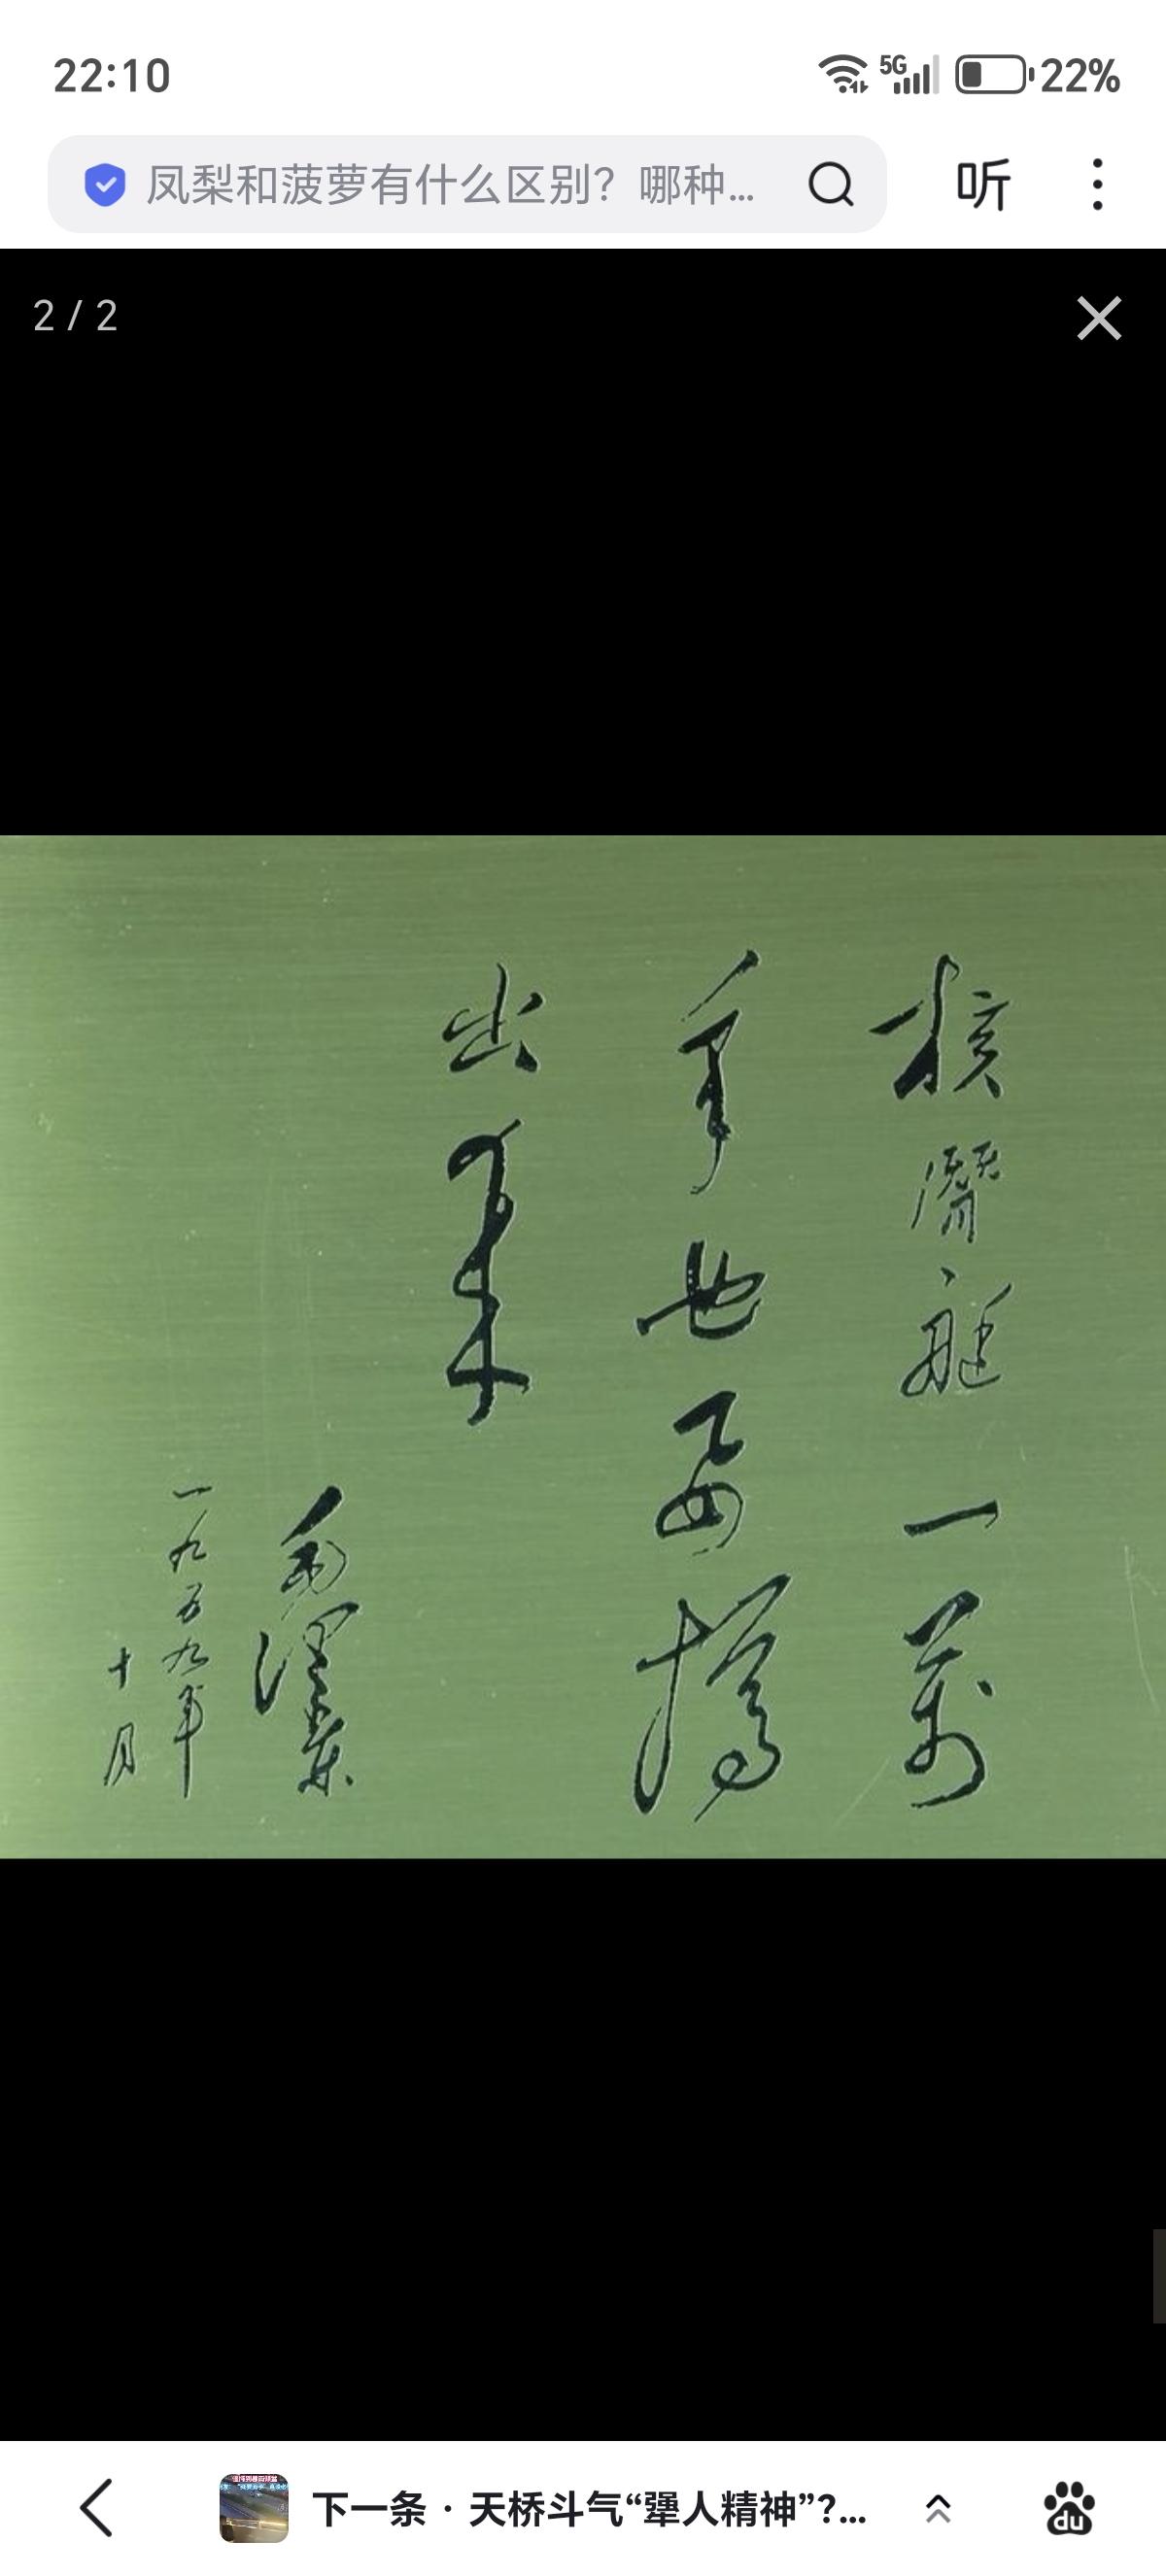 22:10
5G
22%
凤梨和菠萝有什么区别？哪种...
听
2 / 2
核潛艇一萬
年也要搞
出来
毛澤東
一九五九年
十月
下一条 · 天桥斗气“犟人精神”?...
du